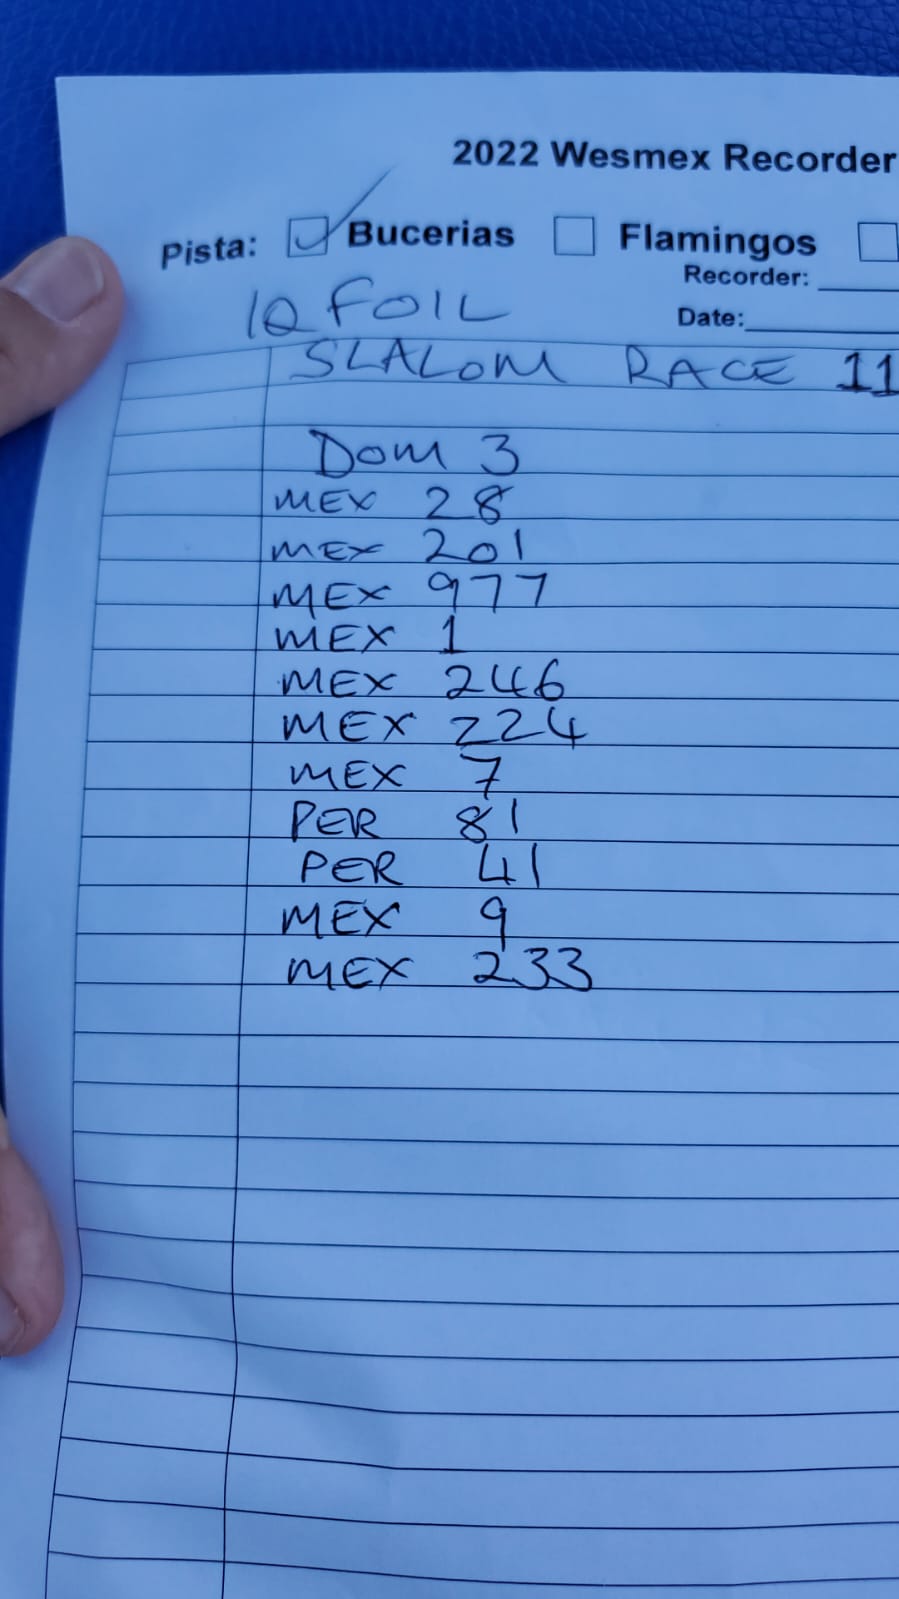 2022 Wesmex Recorder
Pista: Bucerias Flamingos
Recorder:
IQ FOIL
Date:
SLALOM RACE 11
DOM 3
MEX 28
MEX 201
MEX 977
MEX 1
MEX 246
MEX 224
MEX 7
PER 81
PER 41
MEX 9
MEX 233